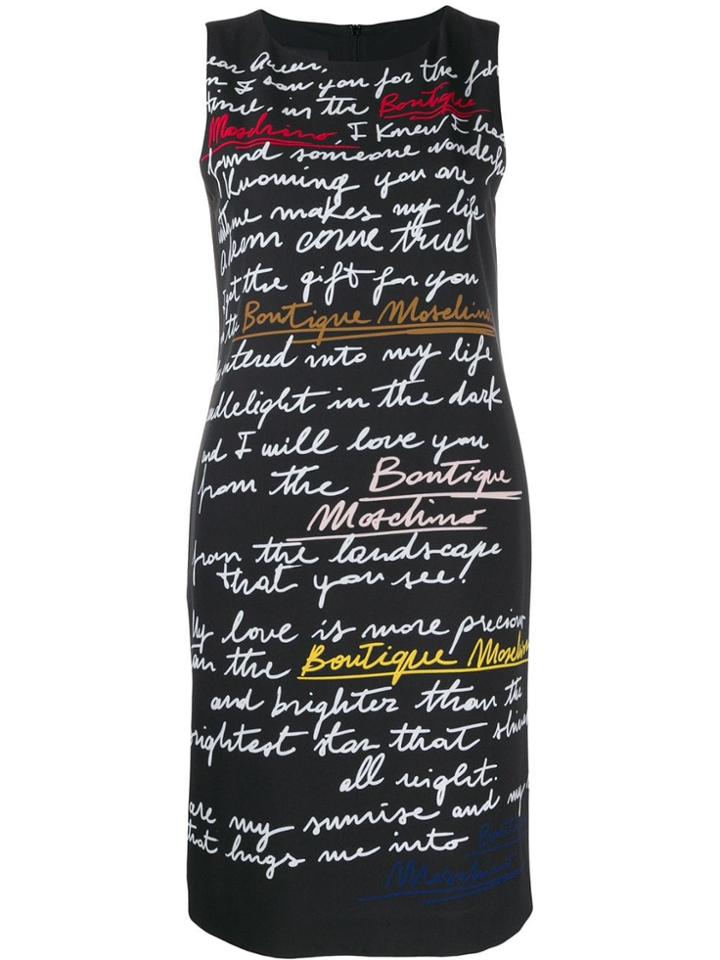 ear Queen,
I saw you for the
time, in the Boutique
Moschino, I knew I had
found someone wonderful
Knowing you are
makes my life
a dream come true
I got the gift for you
in the Boutique Moschino
entered into my life
andlelight in the dark
and I will love you
from the Boutique
Moschino
from the landscape
that you see!
My love is more precious
an the Boutique Moschin
and brighter than the
rightest star that shine
all night.
are my sunrise and my
that hugs me into Bouti
Moschino